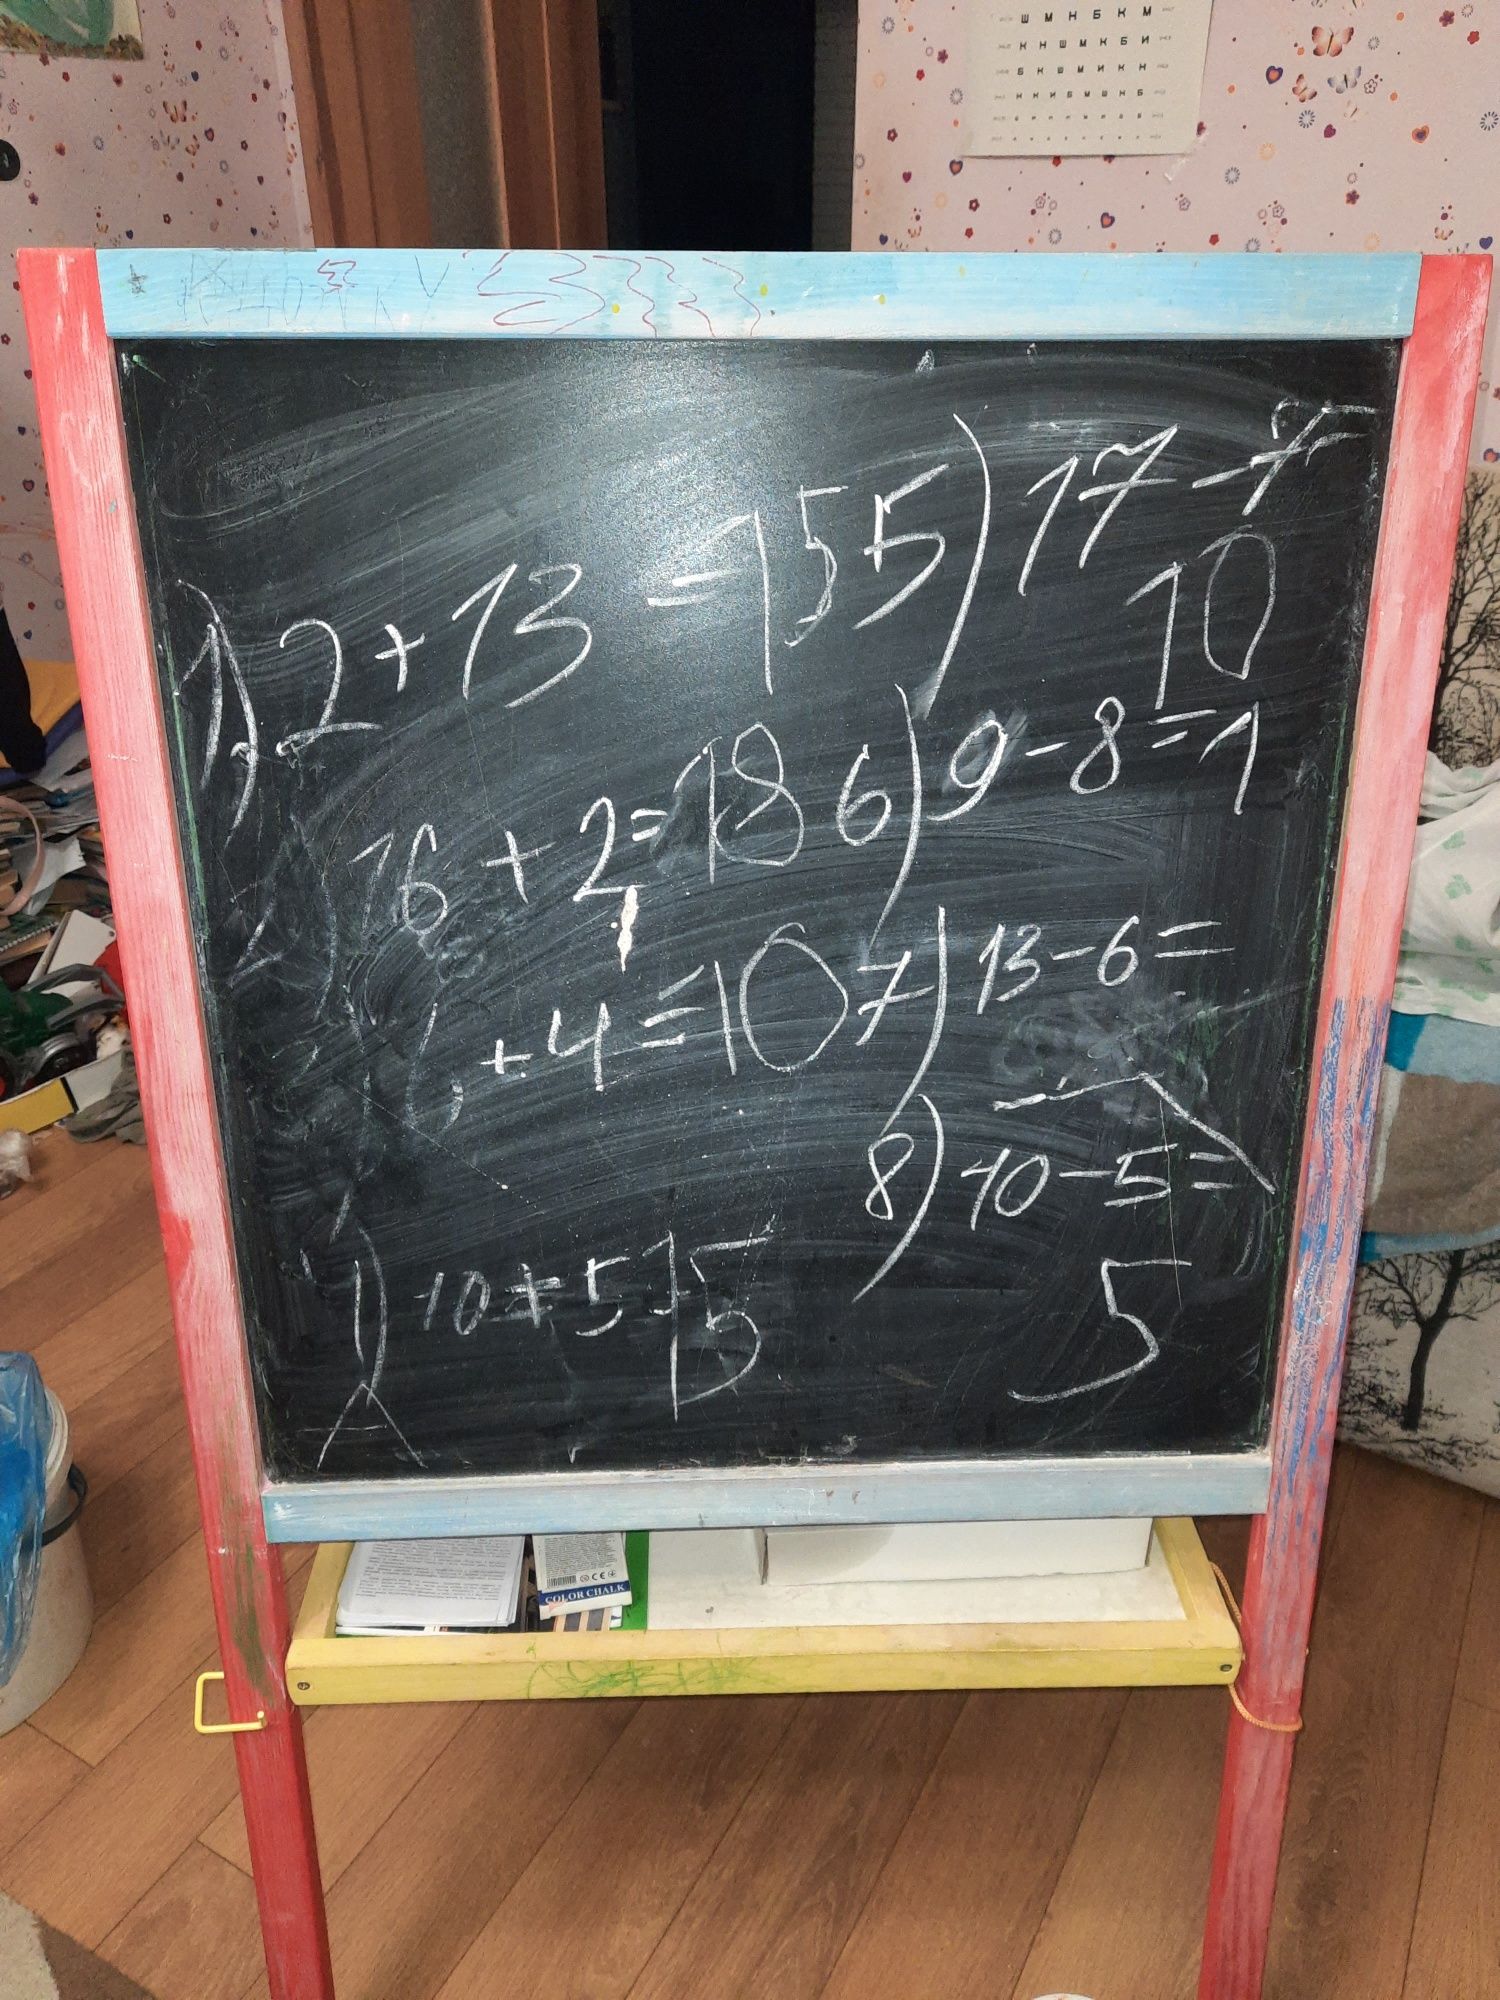 Ш М Н Б К М
К Н Ш М К Б И
Б К Ш М И К Н
Н К И Б М Ш Н Б
1) 2 + 13 = 15
2) 16 + 2 = 18
6 + 4 = 10
10 + 5 15
5) 17 - 7 =
10
6) 9 - 8 = 1
7) 13 - 6 =
8) 10 - 5 =
5
COLOR CHALK